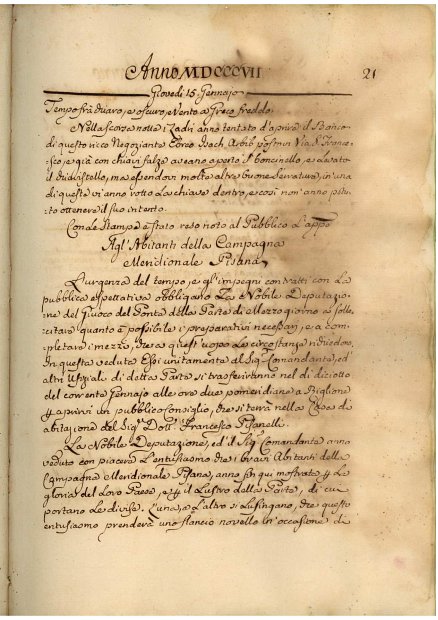 Anno MDCCCVII
21
Giovedì 15. Gennajo
Tempo frà duaro, e oscuro, Vento a Greco freddo
Nella scorsa notte i Ladri anno tentato d'aprire il Banco
di questo ricco Negoziante Ebreo Isach Arbib post in Via S. France-
sco, e già con chiavi false aveano aperto il boncinello, e levato
il chiavistello, ma essendovi molte altre buone serrature, in una
di queste vi anno rotto la chiave dentro, e così non anno potu-
to ottenere il suo intento.
Con le Stampe è stato reso noto al Pubblico L'appo
Agl'Abitanti della Campagna
Meridionale Pisana
L'urgenza del tempo, e gl'impegni contratti con la
pubblica espettativa obbligano La Nobile Deputazio-
ne del Giuoco del Ponte della Parte di Mezzogiorno a solle-
citare quanto è possibile i preparativi necessarj, e a com-
pletare i mezzi, che a quest'uopo le circostanze richiedono.
In questa veduta Essi unitamente al Sig. Comandante, ed
altri Ufiziali di detta Parte si trasferiranno nel dì diciotto
del corrente Gennajo alle ore due pomeridiane a Riglione
p aprirvi un pubblico Consiglio, che si terrà nella Casa di
abitazione del Sig. Dott. Francesco Pisanelli.
La Nobile Deputazione, ed il Sig. Comandante anno
veduto con piacere l'entusiasmo che i bravi Abitanti della
Campagna Meridionale Pisana, anno fin qui mostrato p le
gloria del Loro Paese, e p il Lustro della Parte, di cui
portano le divise. L'una, e l'altro si lusingano, che questo
entusiasmo prenderà uno slancio novello in occasione di